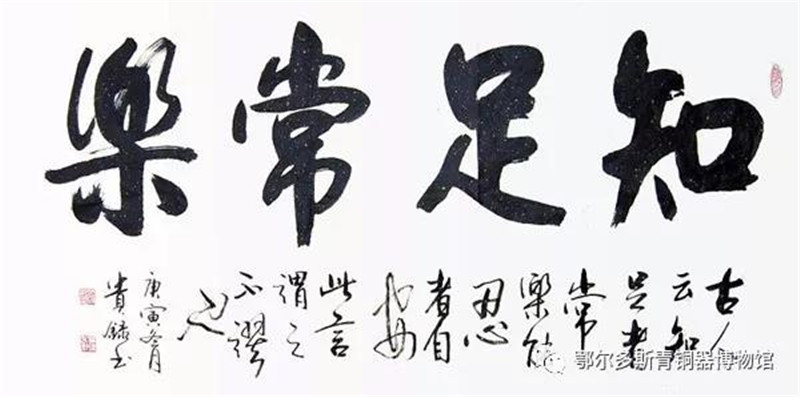 知足常樂
古人
云知
足者
常
樂能
忍
者自
安
此言
謂之
不謬
也
庚寅冬月
貴錄书
鄂尔多斯青铜器博物馆